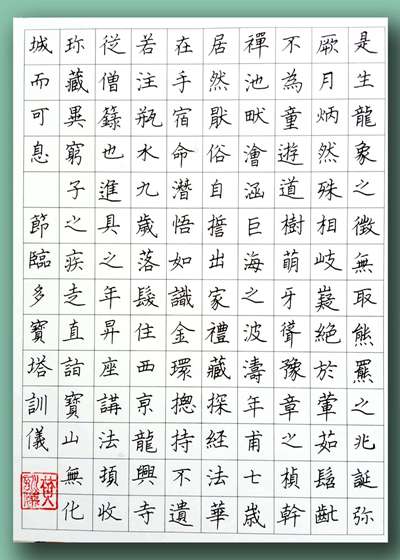 是生龍象之徵無取熊羆之兆誕弥
厥月炳然殊相岐嶷絕於葷茹髫齔
不為童遊道樹萌牙聳豫章之楨幹
禪池畎澮涵巨海之波濤年甫七歲
居然猒俗自誓出家禮藏探経法華
在手宿命潛悟如識金環揔持不遺
若注瓶水九歲落髮住西京龍興寺
從僧籙也進具之年昇座講法頂收
珎藏異窮子之疾走直詣寶山無化
城而可息 節臨多寶塔訓儀